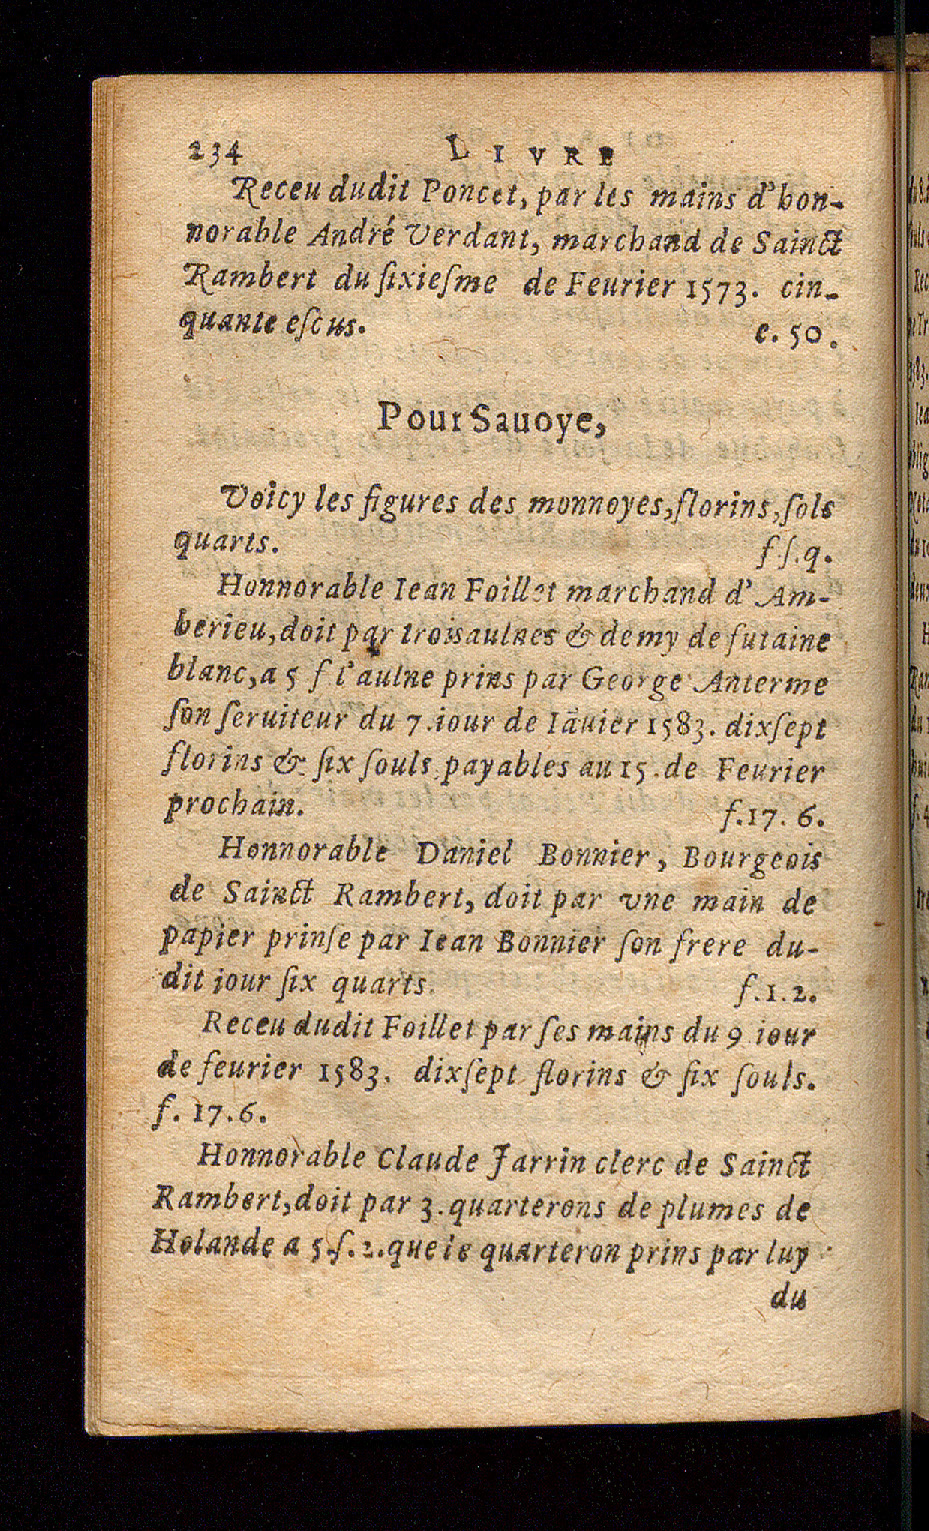 234 LIVRE
Receu dudit Poncet, par les mains d'hon-
norable André Verdant, marchand de Sainct
Rambert du ſixieſme de Feurier 1573. cin-
quante eſcus. e. 50.
Pour Sauoye,
Voicy les figures des monnoyes, florins, ſols
quarts. f ſ. q.
Honnorable Iean Foillet marchand d'Am-
berieu, doit par troisaulnes & demy de futaine
blanc, a 5 f l'aulne prins par George Anterme
ſon ſeruiteur du 7. iour de Iãuier 1583. dixſept
florins & ſix ſouls payables au 15. de Feurier
prochain. f. 17. 6.
Honnorable Daniel Bonnier, Bourgeois
de Sainct Rambert, doit par vne main de
papier prinſe par Iean Bonnier ſon frere du-
dit iour ſix quarts. f. 1. 2.
Receu dudit Foillet par ſes mains du 9 iour
de feurier 1583. dixſept florins & ſix ſouls.
f. 17. 6.
Honnorable Claude Jarrin clerc de Sainct
Rambert, doit par 3. quarterons de plumes de
Holande a 5. ſ. 2. que ie quarteron prins par luy
du